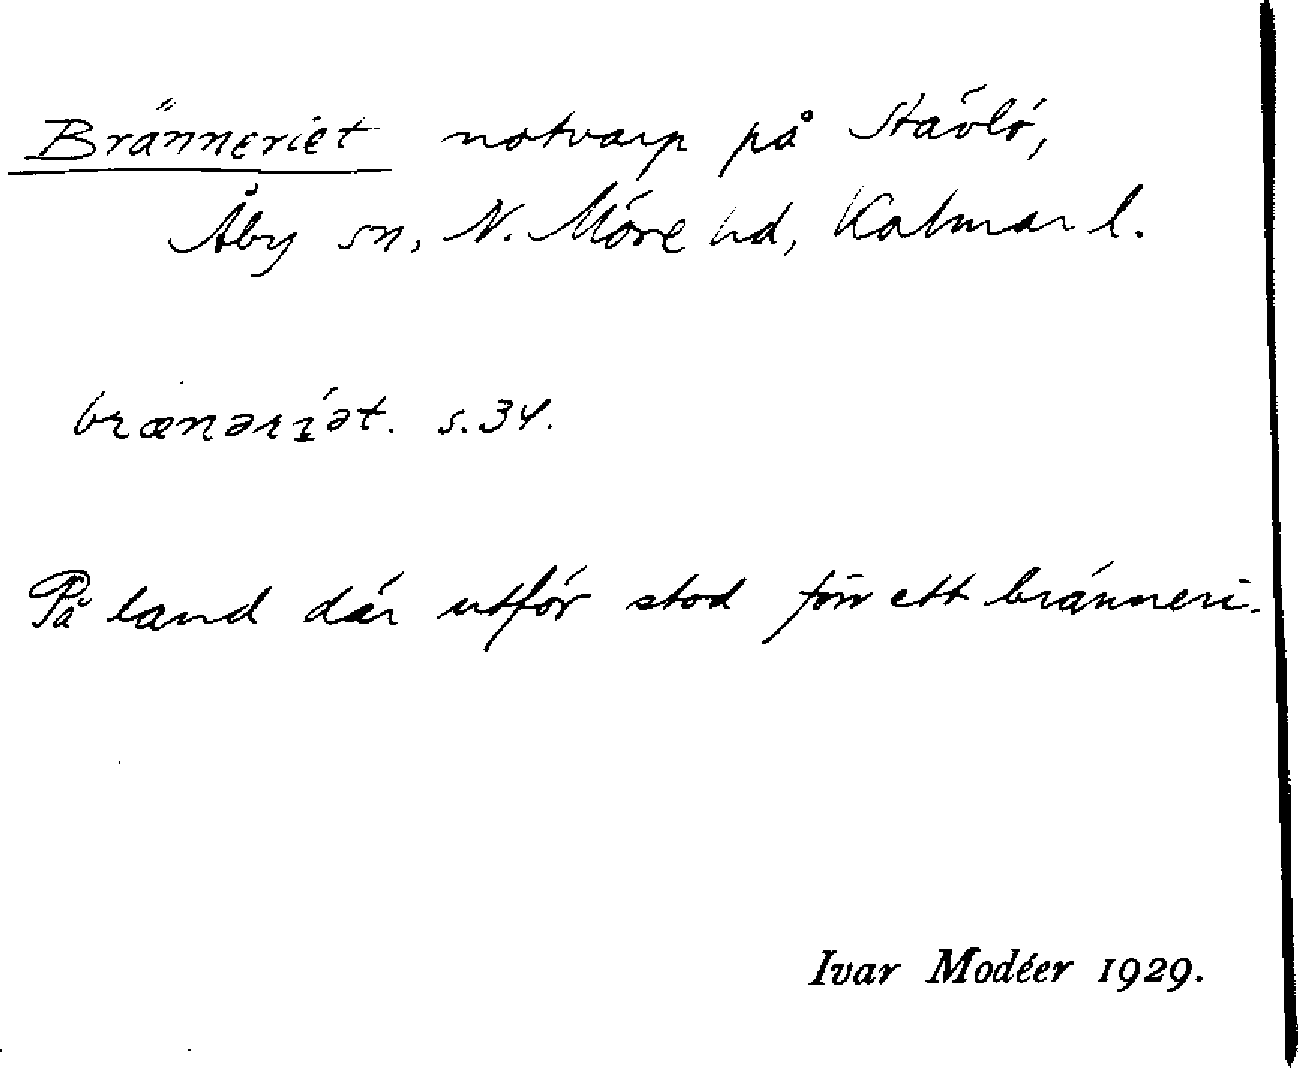 Bränneriet notvarp på Stävlö,
Åby sn, N. Möre hd, Kalmar l.
brænəri̱ət. s.34.
På land där utför stod förr ett bränneri.
Ivar Modéer 1929.